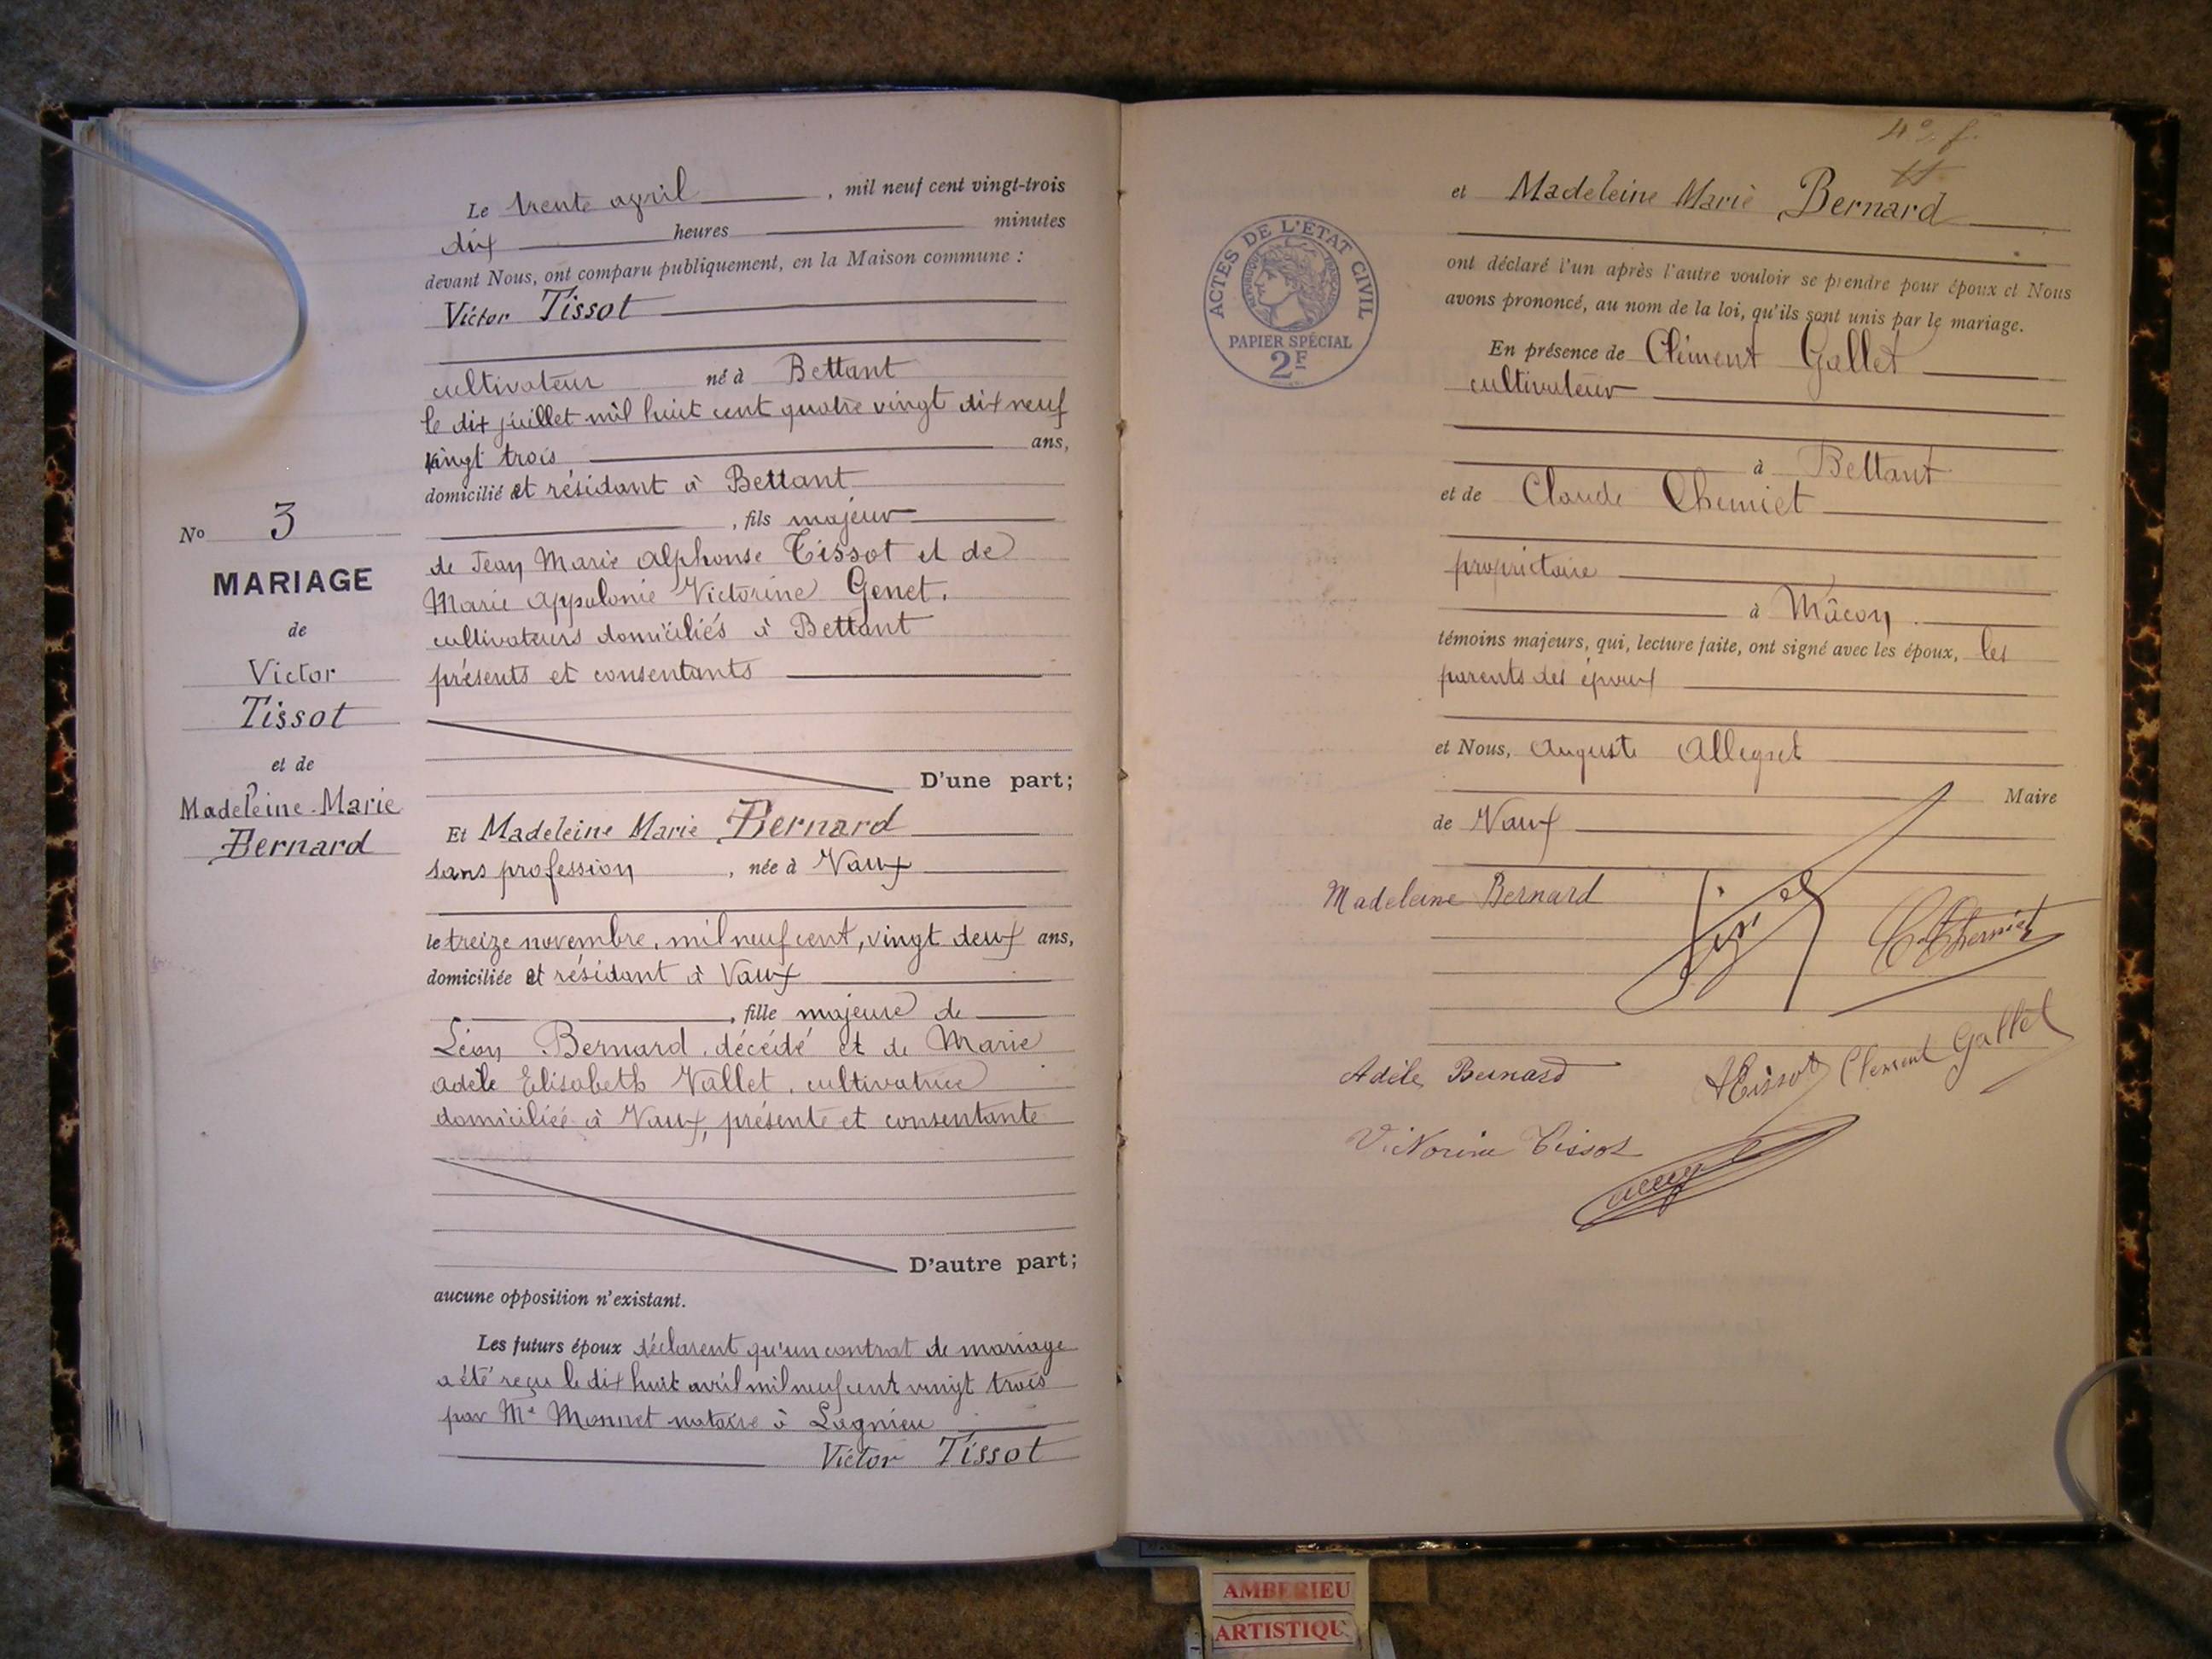 Le trente avril, mil neuf cent vingt-trois
dix heures minutes
devant Nous, ont comparu publiquement, en la Maison commune :
Victor Tissot
cultivateur né à Bettant
le dix juillet mil huit cent quatre vingt dix neuf
vingt trois ans,
domicilié et résidant à Bettant
, fils majeur
de Jean Marie Alphonse Tissot et de
Marie Appolonie Victorine Genet,
cultivateurs domiciliés à Bettant
présents et consentants
D'une part;
Et Madeleine Marie Bernard
sans profession, née à Vaux
le treize novembre, mil neuf cent, vingt deux ans,
domiciliée et résidant à Vaux
, fille majeure de
Léon Bernard, décédé et de Marie
Adèle Elisabeth Vallet, cultivatrice
domiciliée à Vaux, présente et consentante
D'autre part;
aucune opposition n'existant.
Les futurs époux déclarent qu'un contrat de mariage
a été reçu le dix huit avril mil neuf cent vingt trois
par Me Monnet notaire à Lagnieu
Victor Tissot
No 3
MARIAGE
de
Victor
Tissot
et de
Madeleine-Marie
Bernard
4e f.
et Madeleine Marie Bernard
ont déclaré l'un après l'autre vouloir se prendre pour époux et Nous
avons prononcé, au nom de la loi, qu'ils sont unis par le mariage.
En présence de Clément Gallet
cultivateur
à Bettant
et de Claude Cherniet
propriétaire
à Mâcon
témoins majeurs, qui, lecture faite, ont signé avec les époux, les
parents des époux
et Nous, Auguste Allegret
Maire
de Vaux
ACTES DE L'ÉTAT CIVIL
RÉPUBLIQUE FRANÇAISE
PAPIER SPÉCIAL
2F
Madeleine Bernard
C. Cherniet
Adèle Bernard
Tissot
Clement Gallet
Victorine Tissot
AMBERIEU
ARTISTIQU